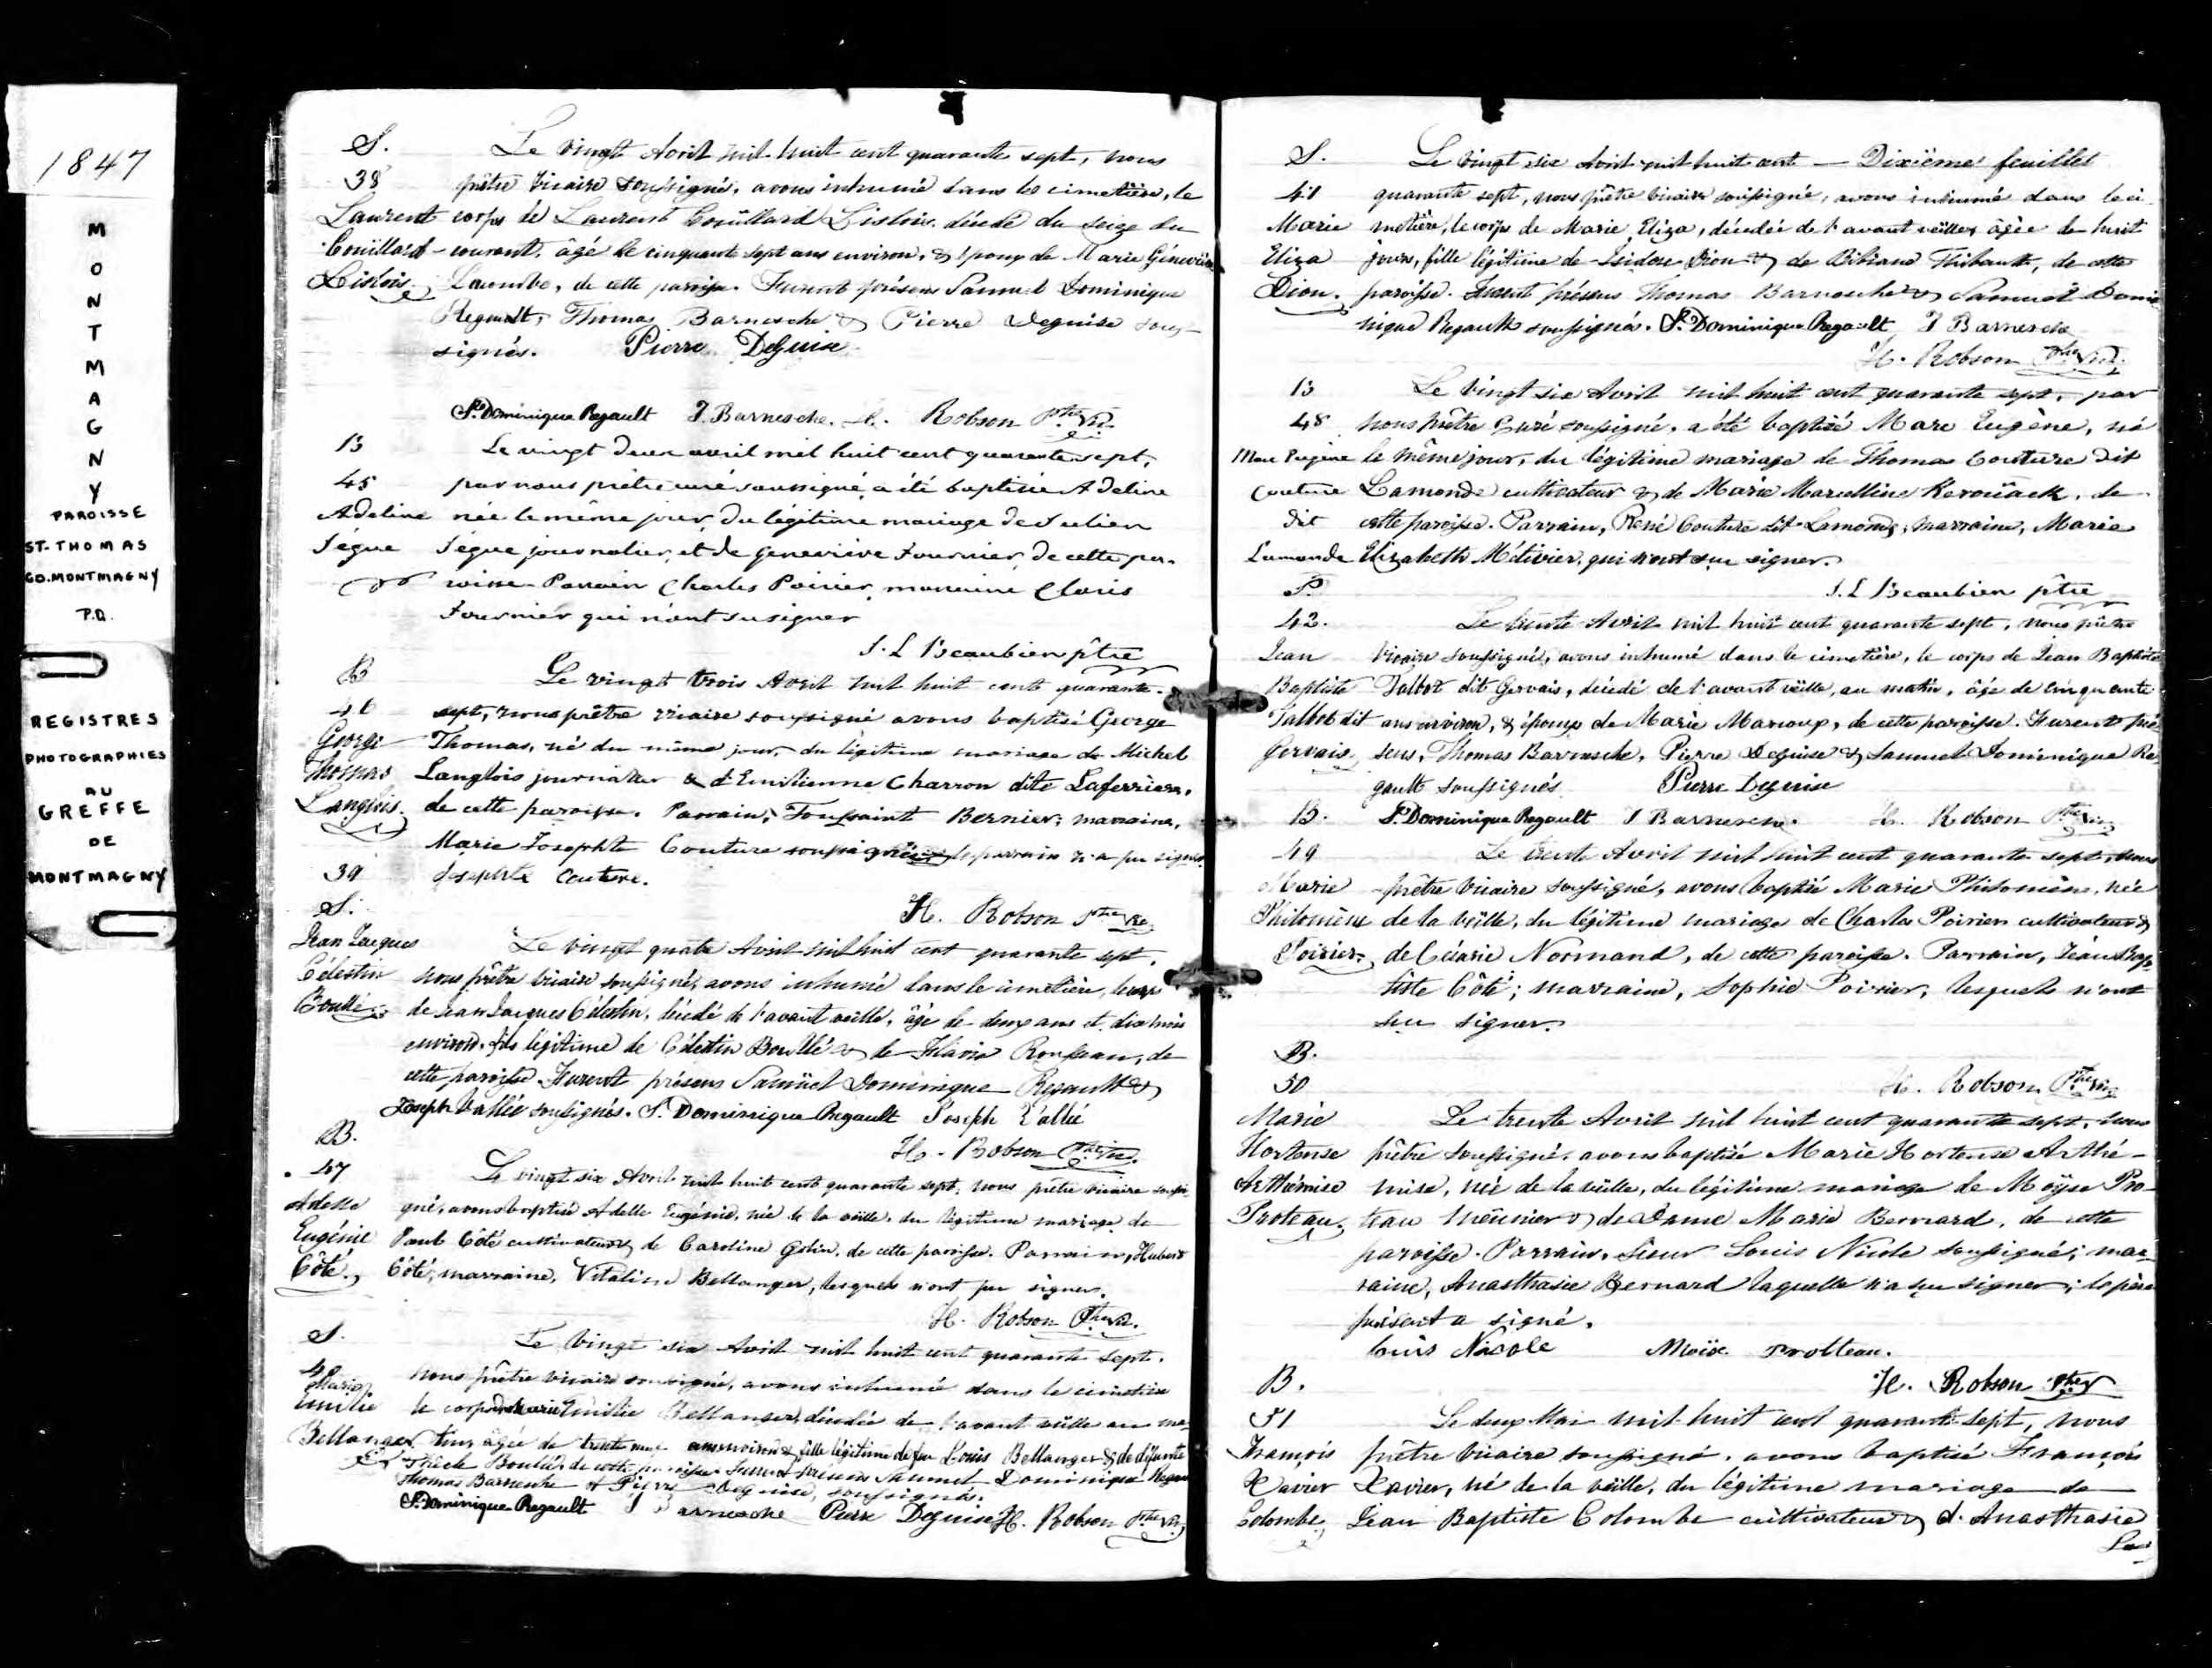 1847
MONTMAGNY
PAROISSE
ST-THOMAS
CO. MONTMAGNY
P.Q.
REGISTRES
PHOTOGRAPHIES
AU
GREFFE
DE
MONTMAGNY
S.
38
Laurent
Couillard
Lislois.
Le vingt Avril mil huit cent quarante sept, nous
prêtre Vicaire soussigné, avons inhumé dans le cimetière, le
corps de Laurent Couillard Lislois, décédé du seize du
courant, âgé de cinquante sept ans environ, & époux de Marie Géneviève
Lacombe, de cette paroisse. Furent présens Samuel Dominique
Regault, Thomas Barnesche & Pierre Deguise sous-
signés. Pierre DeGuise
S. Dominique Regault T. Barnesche. H. Robson Ptre Vic.
B
45
Adeline
Ségue
Le vingt deux avril mil huit cent quarante sept,
par nous prêtre curé soussigné a été baptisée Adeline
née le même jour, du légitime mariage de Julien
Ségue journalier, et de Geneviève Fournier, de cette pa-
roisse Parrain Charles Poirier, marraine Claris
Fournier qui n'ont su signer
J. L Beaubien ptre
B
46
George
Thomas
Langlois.
Le vingt trois Avril mil huit cent quarante-
sept, nous prêtre vicaire soussigné avons baptisé George
Thomas, né du même jour, du légitime mariage de Michel
Langlois journalier & d'Emilienne Charron dite Laferrière,
de cette paroisse. Parrain, Toussaint Bernier; marraine,
Marie Josephte Couture soussignée le parrain n'a pu signer
Josephte Couture.
H. Robson Ptre Vic.
39
S.
Jean Jacques
Célestin
Boullé.
Le vingt quatre Avril mil huit cent quarante sept,
nous prêtre vicaire soussigné, avons inhumé dans le cimetière, le corps
de Jean Jacques Célestin, décédé de l'avant veille, âgé de deux ans et dix mois
environ, fils légitime de Célestin Boullé & de Flavie Rousseau, de
cette paroisse. Furent présens Samüel Dominique Regault &
Joseph Vallée soussignés. S. Dominique Regault Joseph Vallée
H. Robson Ptre Vic.
B.
47
Adelle
Eugénie
Côté.
Le vingt six Avril mil huit cent quarante sept, nous prêtre vicaire soussi-
gné, avons baptisé Adelle Eugénie, née de la veille, du légitime mariage de
Paul Côté cultivateur & de Caroline, de cette paroisse. Parrain, Hubert
Côté; marraine, Vitaline Bellanger, lesquels n'ont pu signer.
H. Robson Ptre Vic.
S.
40
Marie
Emilie
Bellanger
Le vingt six Avril mil huit cent quarante sept,
nous prêtre vicaire soussigné, avons inhumé dans le cimetière
le corps de Marie Emilie Bellanger, décédée de l'avant veille au ma-
tin, âgée de trente neuf ans environ & fille légitime de feu Louis Bellanger & de défunte
Boulé, de cette paroisse Furent présens Samuel Dominique Regault
Thomas Barnesche et Pierre Deguise, soussignés.
S. Dominique Regault T Barnesche Pierre Deguise H. Robson Ptre Vic.
S.
41
Marie
Eliza
Dion.
Le vingt six Avril mil huit cent — Dixième feuillet
quarante sept, nous prêtre vicaire soussigné, avons inhumé dans le ci-
metière, le corps de Marie Eliza, décédée de l'avant veille, âgée de huit
jours, fille légitime de Isidore Dion & de Bibiane Thibault, de cette
paroisse. Furent présens Thomas Barnesche & Samuel Domi-
nique Regault soussignés. S. Dominique Regault T Barnesche
H. Robson Ptre Vic.
B
48
Marc Eugène
Couture
dit
Lamonde
Le vingt six Avril mil huit cent quarante sept, par
nous prêtre Curé soussigné, a été baptisé Marc Eugène, né
le même jour, du légitime mariage de Thomas Couture dit
Lamonde cultivateur & de Marie Marcelline Kerouack, de
cette paroisse. Parrain, René Couture dit Lamonde; marraine, Marie
Elizabeth Métivier, qui n'ont su signer.
J. L Beaubien ptre
S.
42.
Jean
Baptiste
Talbot dit
Gervais.
Le trente Avril mil huit cent quarante sept, nous prêtre
Vicaire soussigné, avons inhumé dans le cimetière, le corps de Jean Baptiste
Talbot dit Gervais, décédé de l'avant veille, au matin, âgé de cinquante
ans environ, & époux de Marie Marcoux, de cette paroisse. Furent pré-
sens, Thomas Barnesche, Pierre Deguise & Samuel Dominique Re-
gault soussignés Pierre Deguise
S. Dominique Regault T Barnesche. H. Robson Ptre Vic
B.
49
Marie
Philomène
Poirier.
Le trente Avril mil huit cent quarante sept, nous
prêtre vicaire soussigné, avons baptisé Marie Philomène, née
de la veille, du légitime mariage de Charles Poirier cultivateur &
de Césarie Normand, de cette paroisse. Parrain, Jean Bap-
tiste Côté; marraine, Sophie Poirier, lesquels n'ont
su signer.
H. Robson Ptre Vic
B.
50
Marie
Hortense
Arthémise
Proteau.
Le trente Avril mil huit cent quarante sept, nous
prêtre soussigné, avons baptisé Marie Hortense Arthé-
mise, née de la veille, du légitime mariage de Moÿse Pro-
teau meunier & de Dame Marie Bernard, de cette
paroisse. Parrain, Sieur Louis Nicole soussigné; mar-
raine, Anasthasie Bernard laquelle n'a su signer; le père
présent a signé.
Louis Nicole Moïse Protteau.
H. Robson Ptre V
B.
51
François
Xavier
Colombe.
Le deux Mai mil huit cent quarante sept, nous
prêtre Vicaire soussigné, avons baptisé François
Xavier, né de la veille, du légitime mariage de
Jean Baptiste Colombe cultivateur & d'Anasthasie